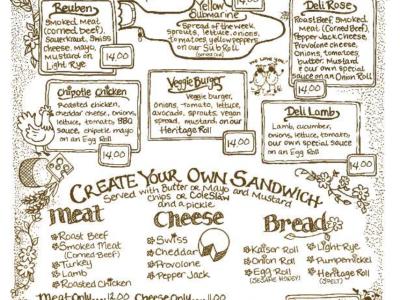 Reuben
Smoked Meat
(corned Beef),
Sauerkraut, Swiss
cheese, mayo,
mustard on
Light Rye
14.00
Yellow
Submarine
Spread of the week,
sprouts, lettuce, onions,
tomatoes, yellow peppers
on our Sub Roll
14.00
Deli Rose
Roast Beef, Smoked
Meat (Corned Beef),
Pepper Jack Cheese,
Provolone cheese,
Onions, tomatoes,
butter, Mustard
& our own special
sauce on an Onion Roll
14.00
Chipotle Chicken
Roasted chicken,
cheddar cheese, onions,
lettuce, tomato, BBQ
sauce, chipotle mayo
on an Egg Roll
14.00
Veggie Burger
Veggie burger,
onions, tomato, lettuce,
avocado, sprouts, vegan
spread, mustard on our
Heritage Roll
14.00
We Love You
Deli Lamb
Lamb, cucumber,
onions, lettuce, tomato,
our own special sauce
on an Egg Roll
14.00
Create Your Own Sandwich
Served with Butter or Mayo and Mustard
Chips or Coleslaw
and a pickle
Meat
Roast Beef
Smoked Meat
(Corned Beef)
Turkey
Lamb
Roasted Chicken
Cheese
Swiss
Cheddar
Provolone
Pepper Jack
Bread
Kaiser Roll
Onion Roll
Egg Roll
(Sesame, Honey)
Light Rye
Pumpernickel
Heritage Roll
(Spelt)
Meat Only....12.00 Cheese Only....11.00